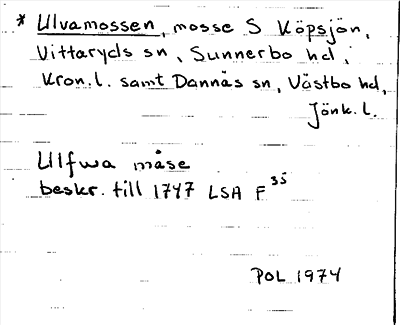 * Ulvamossen, mosse S Köpsjön,
Vittaryds sn, Sunnerbo hd,
Kron.l. samt Dannäs sn, Västbo hd,
Jönk.l.
Ulfwa måse
beskr. till 1747 LSA F 35
POL 1974